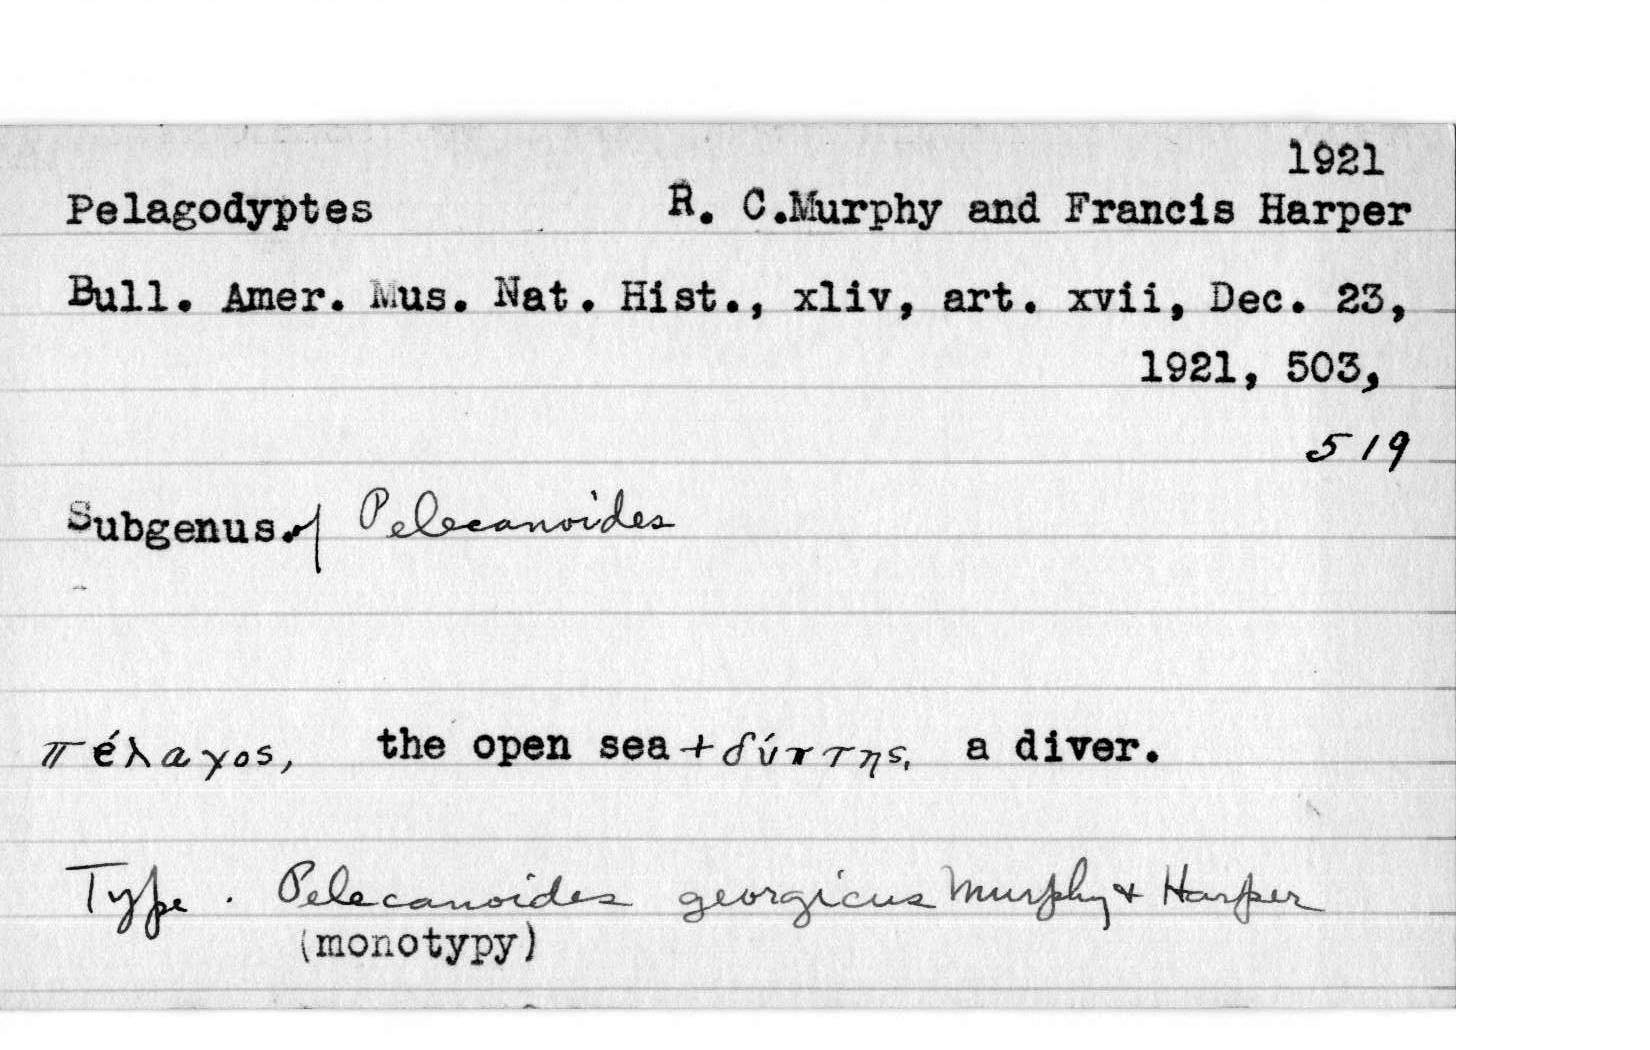 1921
Pelagodyptes R. C.Murphy and Francis Harper
Bull. Amer. Mus. Nat. Hist., xliv, art. xvii, Dec. 23,
1921, 503,
519
Subgenus. of Pelecanoides
πέλαγος, the open sea + δύπτης, a diver.
Type. Pelecanoides georgicus Murphy & Harper
(monotypy)